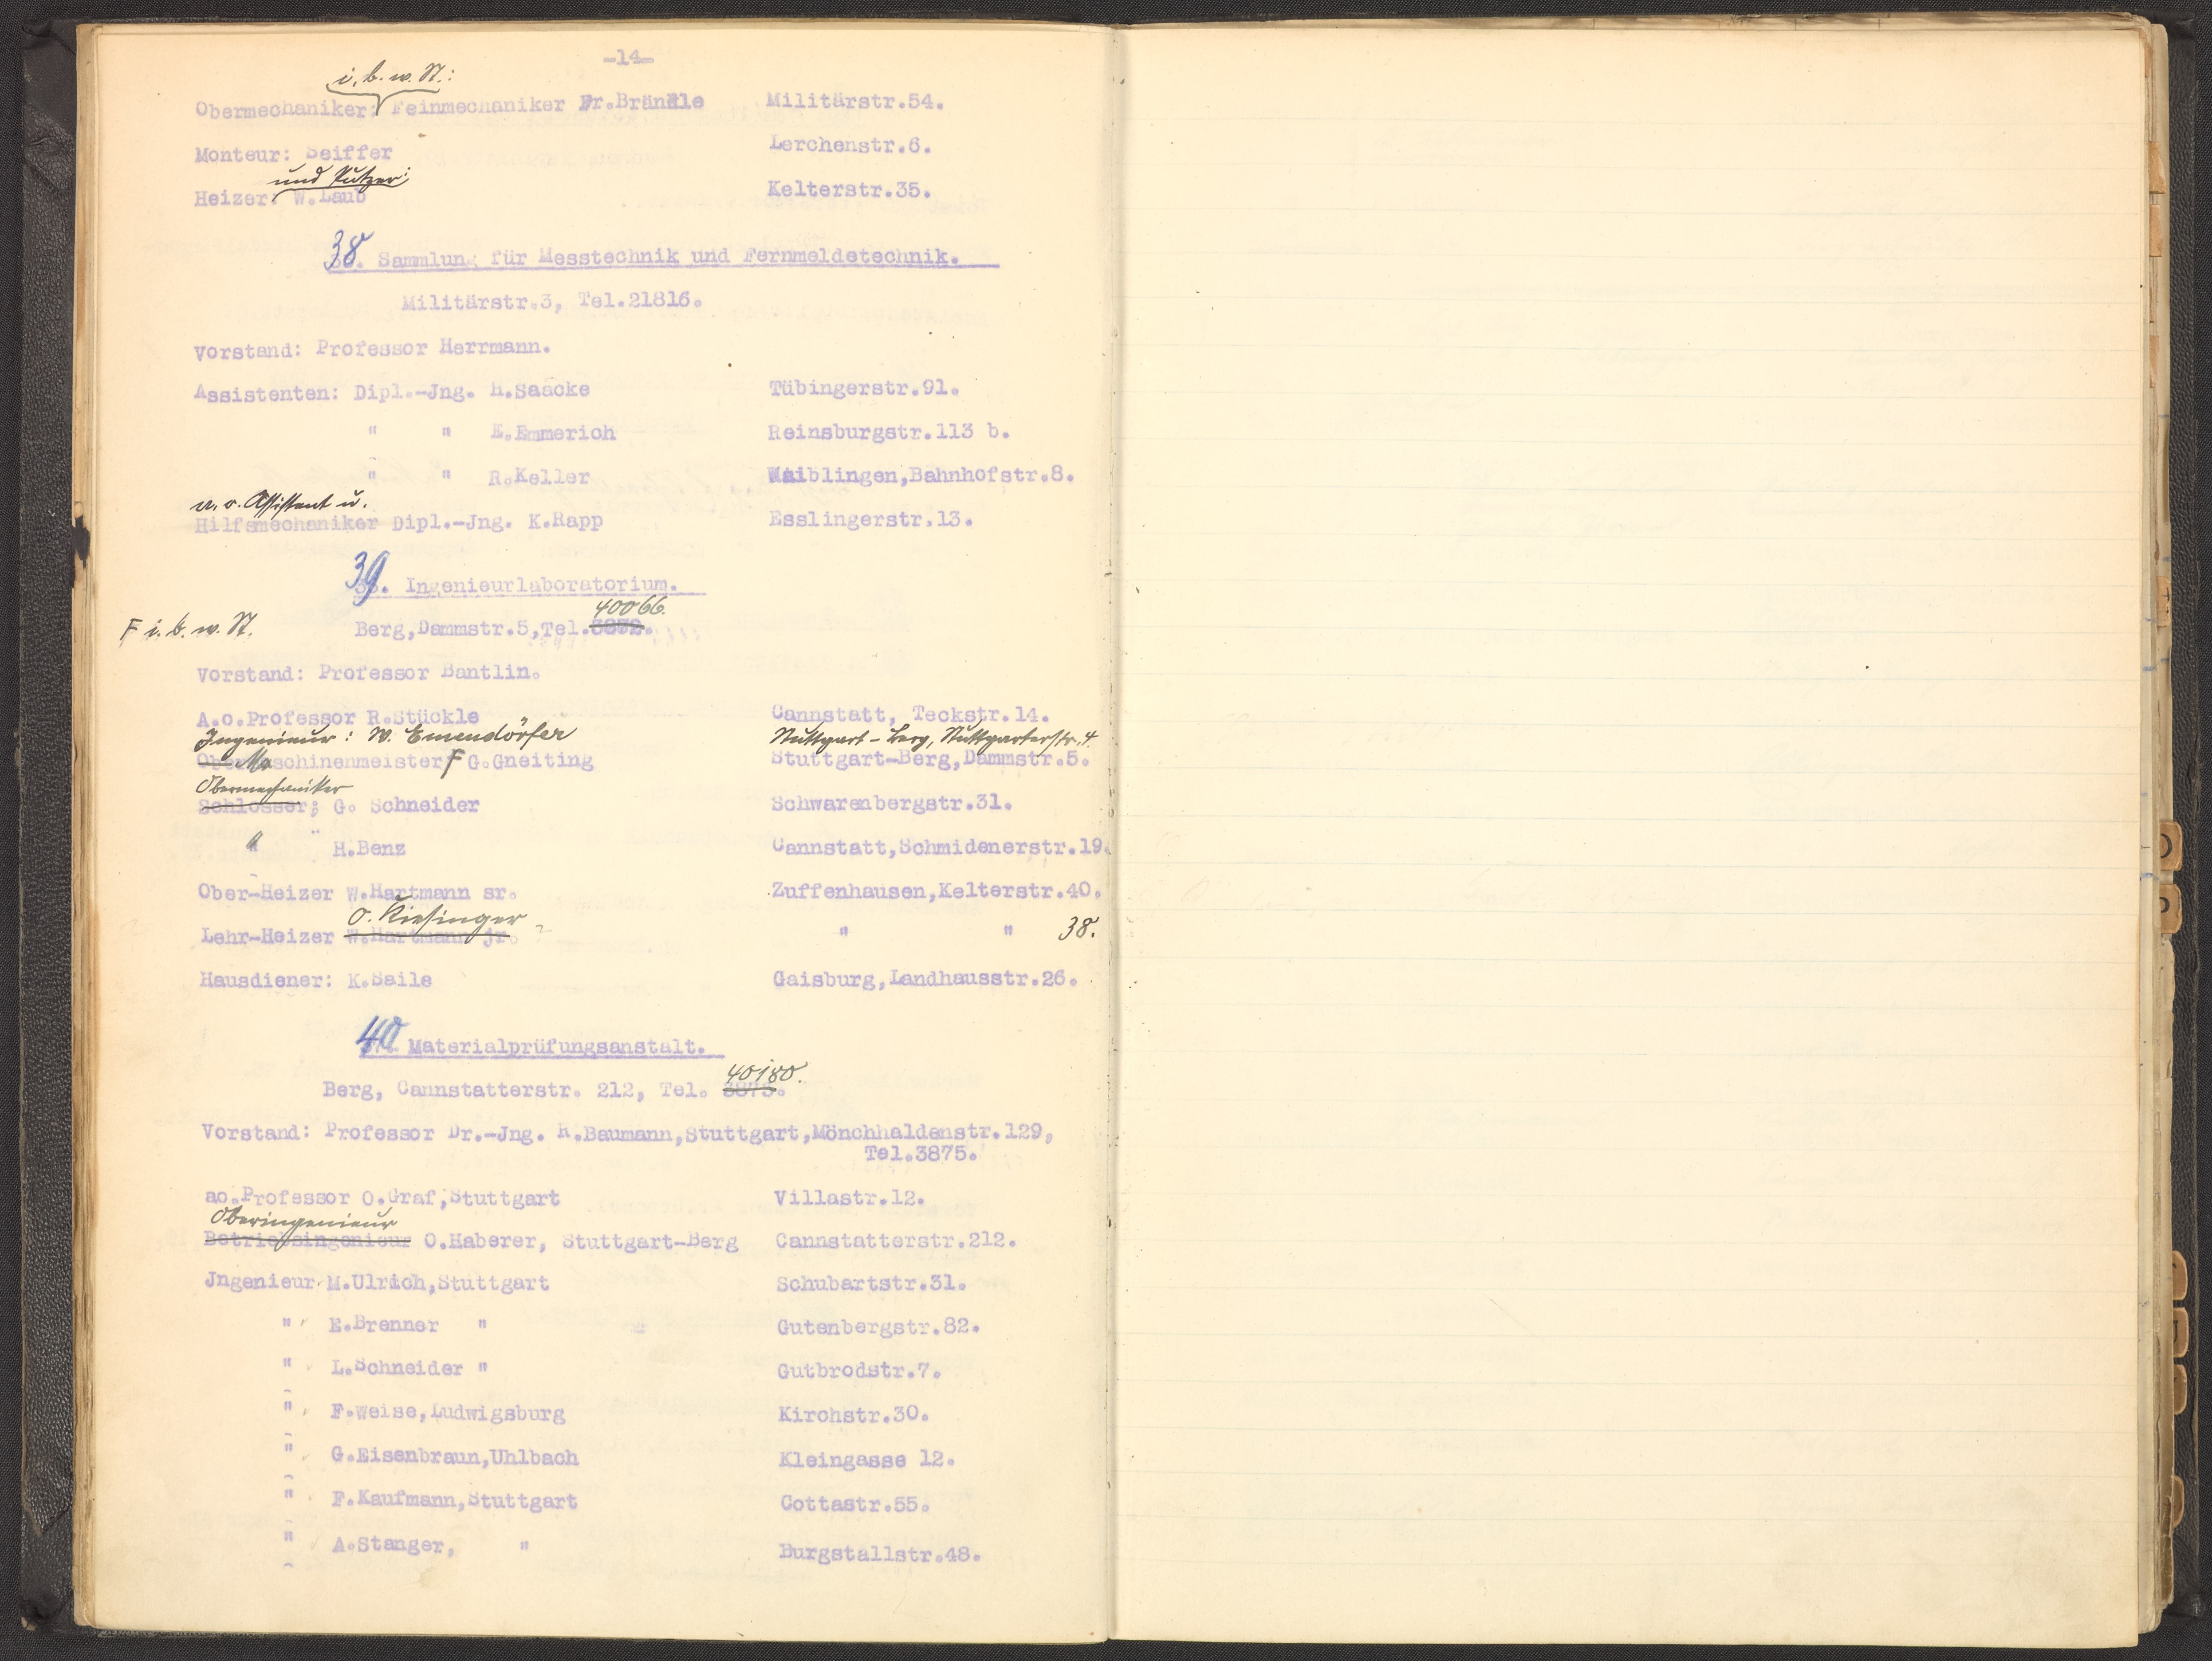 -14-
i. b. w. St.:
Obermechaniker: Feinmechaniker Fr.Brändle Militärstr.54.
Monteur: Seiffer Lerchenstr.6.
und Putzer:
Heizer: W.Laub Kelterstr.35.
38. Sammlung für Messtechnik und Fernmeldetechnik.
Militärstr.3, Tel.21816.
Vorstand: Professor Herrmann.
Assistenten: Dipl.-Jng. H.Saacke Tübingerstr.91.
" " E.Emmerich Reinsburgstr.113 b.
" " R.Keller Waiblingen,Bahnhofstr.8.
a. o. Assistent u.
Hilfsmechaniker Dipl.-Jng. K.Rapp Esslingerstr.13.
39. Ingenieurlaboratorium.
40066.
F i. b. w. St. Berg,Dammstr.5,Tel.3872.
Vorstand: Professor Bantlin.
A.o.Professor R.Stückle Cannstatt, Teckstr.14.
Ingenieur: W. Emendörfer Stuttgart-Berg, Stuttgarterstr. 4.
Ober Maschinenmeister F G.Gneiting Stuttgart-Berg,Dammstr.5.
Obermechaniker
Schlosser; G. Schneider Schwarenbergstr.31.
" " H.Benz Cannstatt,Schmidenerstr.19.
Ober-Heizer W.Hartmann sr. Zuffenhausen,Kelterstr.40.
O. Kiesinger
Lehr-Heizer W.Hartmann jr. " " 38.
Hausdiener: K.Saile Gaisburg,Landhausstr.26.
40. Materialprüfungsanstalt.
40180.
Berg, Cannstatterstr. 212, Tel. 3875.
Vorstand: Professor Dr.-Jng. R.Baumann,Stuttgart,Mönchhaldenstr.129,
Tel.3875.
ao.Professor O.Graf,Stuttgart Villastr.12.
Oberingenieur
Betriebsingenieur O.Haberer, Stuttgart-Berg Cannstatterstr.212.
Jngenieur M.Ulrich,Stuttgart Schubartstr.31.
" E.Brenner " Gutenbergstr.82.
" L.Schneider " Gutbrodstr.7.
" F.Weise,Ludwigsburg Kirchstr.30.
" G.Eisenbraun,Uhlbach Kleingasse 12.
" F.Kaufmann,Stuttgart Cottastr.55.
" A.Stanger, " Burgstallstr.48.